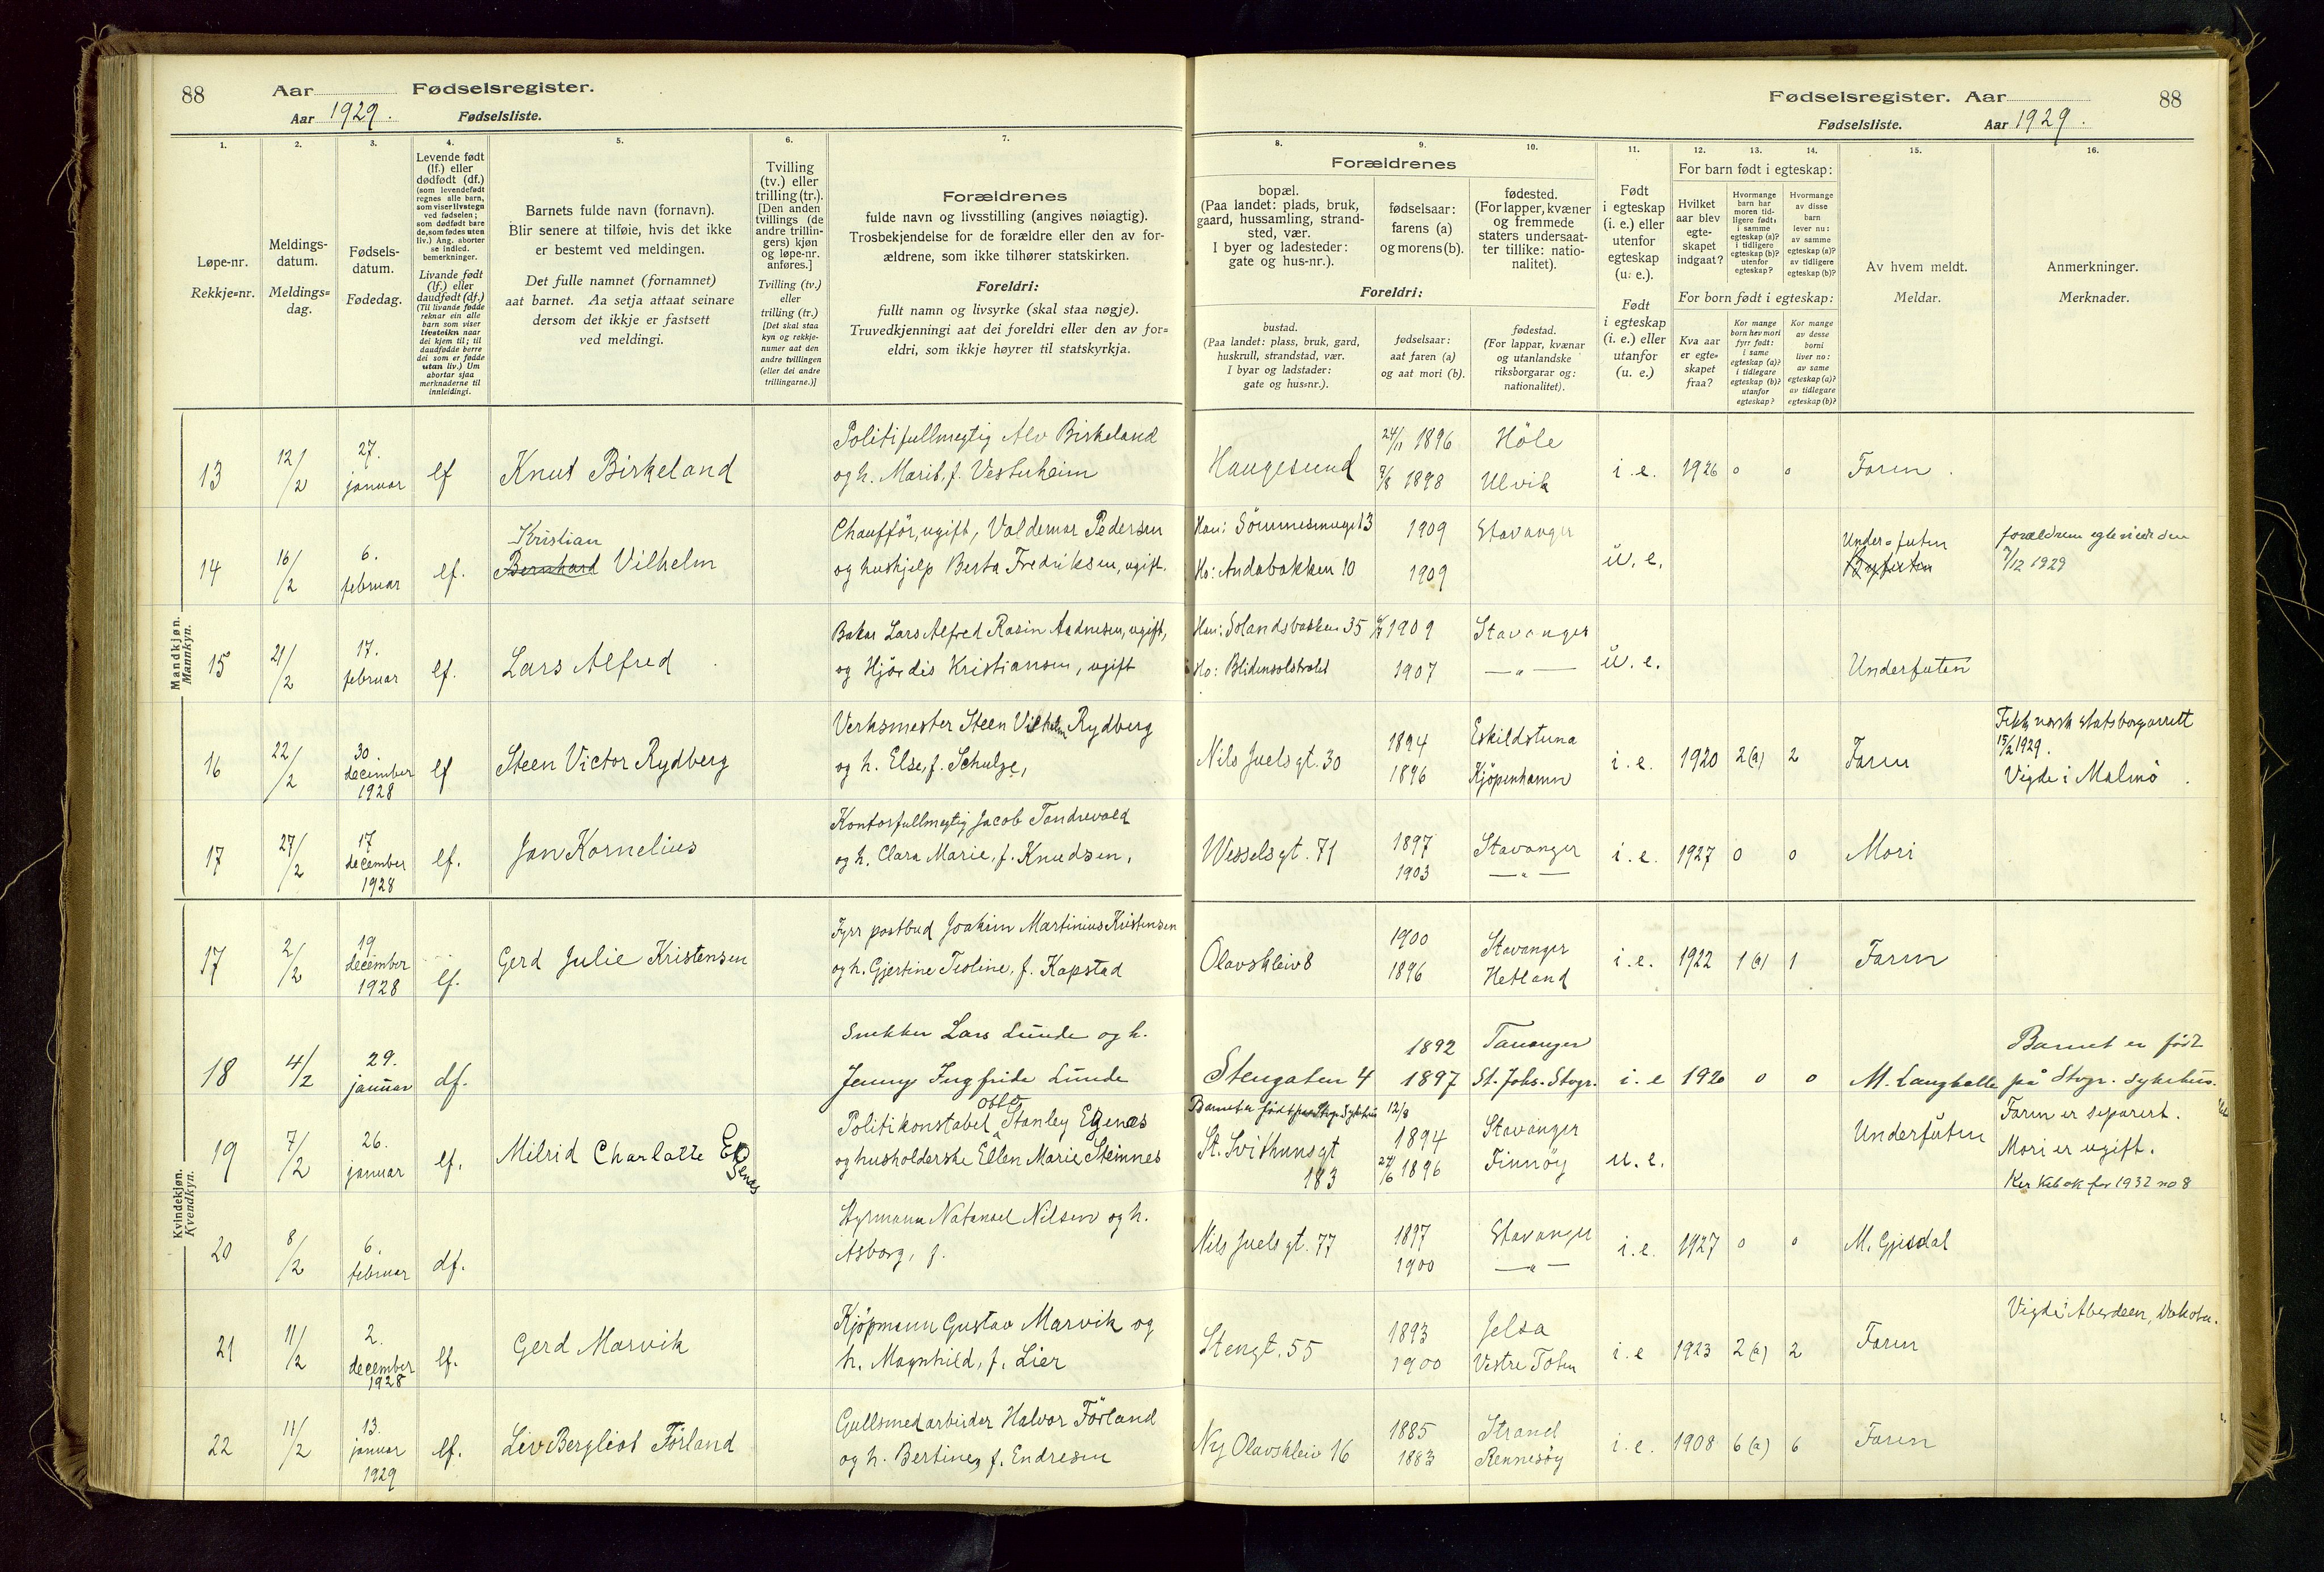 88 Aar Fødselsregister.
Aar 1929. Fødselsliste.
1. 2. 3. 4. 5. 6. 7.
Løpe-nr.
Rekkje=nr.
Meldings-
datum.
Meldings=
dag.
Fødsels-
datum.
Fødedag.
Levende født
(lf.) eller
dødfødt (df.)
(som levendefødt
regnes alle barn,
som viser livstegn
ved fødselen;
som dødfødt bare
de, som fødes uten
liv.) Ang. aborter
se indled.
bemerkninger.
Livande født
(lf.) eller
daudfødt (df.)
(Til livande fødde
reknar ein alle
barn som viser
livsteikn naar
dei kjem til; til
daudfødde berre
dei som er fødde
utan liv.) Um
abortar sjaa
merknaderne til
innleidingi.
Barnets fulde navn (fornavn).
Blir senere at tilføie, hvis det ikke
er bestemt ved meldingen.
Det fulle namnet (fornamnet)
aat barnet. Aa setja attaat seinare
dersom det ikkje er fastsett
ved meldingi.
Tvilling
(tv.) eller
trilling (tr.).
[Den anden
tvillings (de
andre trillin-
gers) kjøn
og løpe-nr.
anføres.]
Tvilling (tv.)
eller
trilling (tr.)
[Det skal staa
kyn og rekkje-
numer aat den
andre tvillingen
(eller dei andre
trillingarne.)]
Forældrenes
fulde navn og livsstilling (angives nøiagtig).
Trosbekjendelse for de forældre eller den av for-
ældrene, som ikke tilhører statskirken.
Foreldri:
fullt namn og livsyrke (skal staa nøgje).
Truvedkjenningi aat dei foreldri eller den av for=
eldri, som ikkje høyrer til statskyrkja.
Mandkjøn.
Mannkyn.
13 12/2 27. januar lf Knut Birkeland
Politifullmegtig Alv Birkeland
og h. Marit, f. Vesterheim
14 16/2 6. februar lf. Kristian
Bernhard Vilhelm
Chaufför, ugift, Valdemar Pedersen
og hushjelp Berta Fredriksen, ugift.
15 21/2 17. februar lf. Lars Alfred
Baker Lars Alfred Rasin Aadnesen, ugift,
og Hjördis Kristiansen, ugift
16 22/2 30. december 1928 lf Steen Victor Rydberg
Verksmester Steen Vilhelm Rydberg
og h. Else, f. Schulze,
17 27/2 17 december 1928 lf. Jan Kornelius
Kontorfullmegtig Jacob Tandrevold
og h. Clara Marie, f. Knudsen,
Kvindekjøn.
Kvendkyn.
17 2/2 19 december 1928 lf. Gerd Julie Kristensen
Fyrr postbud Joakim Martinius Kristensen
og h. Gjertine Teoline, f. Kapstad
18 4/2 29. januar df.
Snekker Lars Lunde og h.
Jenny Ingfride Lunde
19 7/2 26. januar lf. Milrid Charlotte Egenæs
Otto
Politikonstabel Stanley Egenæs
og husholderske Ellen Marie Steinnes
20 8/2 6. februar df.
Styrmann Natanael Nilsen og h.
Asborg, f.
21 11/2 2. december 1928 lf. Gerd Marvik
Kjöpmann Gustav Marvik og
h. Magnhild, f. Lier
22 11/2 13. januar 1929 lf. Liv Bergliot Förland
Gullsmedarbeider Halvor Förland
og h. Bertine, f. Endresen
Fødselsregister. Aar 88
Fødselsliste. Aar 1929.
8. 9. 10. 11. 12. 13. 14. 15. 16.
Forældrenes
bopæl.
(Paa landet: plads, bruk,
gaard, hussamling, strand-
sted, vær.
I byer og ladesteder:
gate og hus-nr.).
fødselsaar:
farens (a)
og morens (b).
fødested.
(For lapper, kvæner
og fremmede
staters undersaat-
ter tillike: natio-
nalitet).
Foreldri:
bustad.
(Paa landet: plass, bruk, gard,
huskrull, strandstad, vær.
I byar og ladstader:
gate og hus=nr.).
fødselsaar:
aat faren (a)
og aat mori (b).
fødestad.
(For lappar, kvænar
og utanlandske
riksborgarar og:
nationalitet).
Født
i egteskap
(i. e.) eller
utenfor
egteskap
(u. e.).
Født
i egteskap
(i. e.) eller
utanfor
(u. e.)
For barn født i egteskap:
Hvilket
aar blev
egte-
skapet
indgaat?
Hvormange
barn har
moren tid-
ligere født:
i samme
egteskap (a)?
i tidligere
egteskap (b)?
utenfor
egteskap?
Hvormange
av disse
barn
lever nu:
av samme
egteskap (a)?
av tidligere
egteskap (b)?
For born født i egteskap:
Kva aar
er egte=
skapet
fraa?
Kor mange
born hev mori
fyrr født:
i same
egteskap (a)?
i tidlegare
egteskap (b)?
utanfor
egteskap?
Kor mange
av desse
borni
liver no:
av same
egteskap (a)?
av tidlegare
egteskap (b)?
Av hvem meldt.
Meldar.
Anmerkninger.
Merknader.
Haugesund 24/11 1896 Höle i. e. 1926 0 0 Faren.
9/8 1898 Ulvik
Han: Sömmesmuget 3 1909 Stavanger u. e. Underfuten
Ho: Andabakken 10 1909 Byfuten
forældrene egteviede den
7/12 1929
Han: Solandsbakken 35 1909 Stavanger u. e. Underfuten
Ho: Blidensolstrædet 1907 — „ —
Nils Juels gt. 30 1894 Eskildstuna i. e. 1920 2 (a) 2 Faren
1896 Kjöpenhamn
Fekk norsk statsborgarrett
15/2 1929.
Vigde i Malmö.
Wessels gt. 71 1897 Stavanger i. e. 1927 0 0 Mori
1903 — „ —
Olavskleiv 8 1900 Stavanger i. e. 1922 1 (a) 1 Faren
1896 Hetland
Stengaten 4 1892 Tananger i. e 1920 0 0 M. Langballe
1897 St. Joh. Stvgr.
Barnet er født
på Stvgr. sykehus.
Barnet er født på Stvgr. Sykehus
St. Svithunsgt 183 12/8 1894 Stavanger u. e. Underfuten
24/6 1896 Finnöy
Faren er separert.
Mori er ugift.
1932 no 8
Nils Juels gt. 77 1897 Stavanger i. e. 1927 0 0 M. Gjesdal
1900 — „ —
Stengt. 55 1893 Jelsa i. e 1923 2 (a) 2 Faren
1900 Vestre Toten
Vigde i Aberdeen, Dakota.
Ny Olavskleiv 16 1885 Strand i. e. 1908 6 (a) 6 Faren
1883 Rennesöy